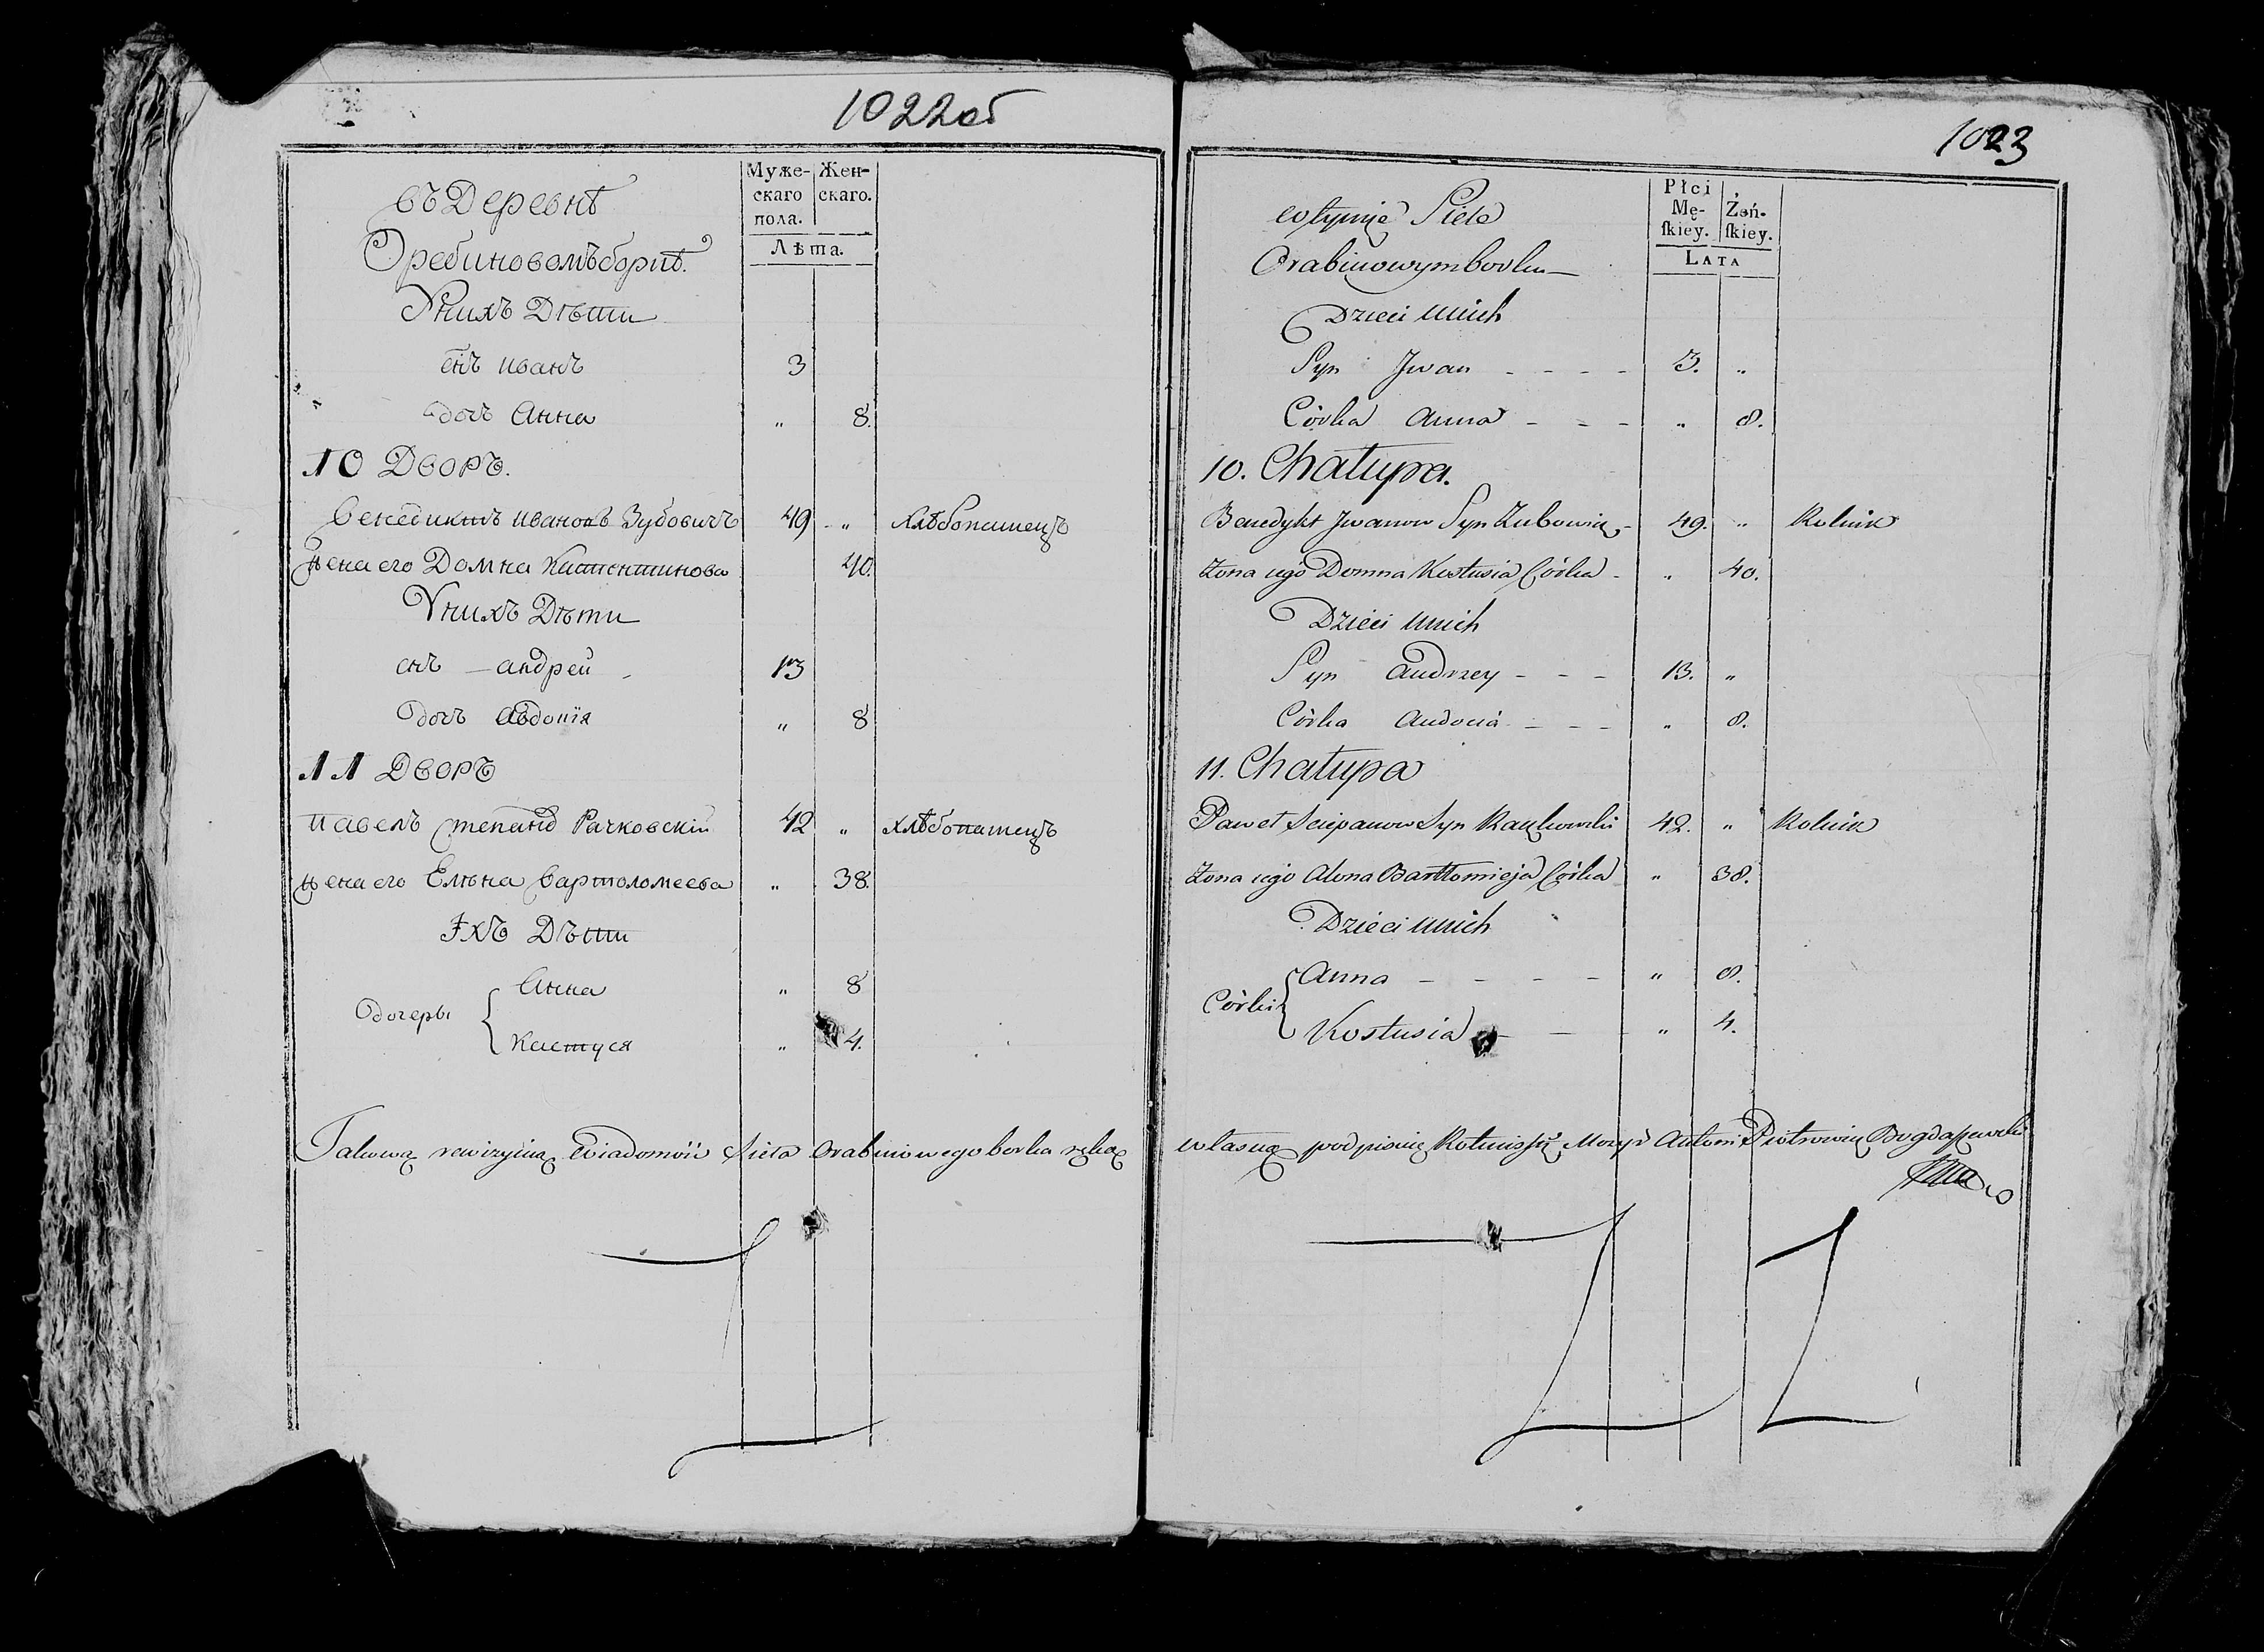 1022об
Муже-
скаго
пола.
Жен-
скаго.
Лѣта.
въ Деревнѣ
Оребиновомъ боркѣ.
У нихъ Дѣти
снъ иванъ 3
дочь Анна " 8.
10 Дворъ.
Венедиктъ ивановъ Зубовичъ 49 " Хлѣбопашецъ
жена его Домна Кастентинова 40.
У нихъ Дѣти
снъ — андрей 13
дочь Авдоція " 8
11 Дворъ
павелъ степановъ Рачковскій 42 " хлѣбопашецъ
жена его Елѣна вартоломеева " 38.
Ихъ Дѣти
дочеры { Анна " 8
Кастуся " 4.
Takową rewizyiną wiadomość Sieła Orabinowego borka ręką
1023
Płci
Mę-
ſkiey.
Żeń-
ſkiey.
LATA
w tymże Siele
Orabinowym borku
Dzieci u nich
Syn Jwan - - - - 3. "
Córka Anna - - - " 8.
10. Chałupa.
Benedykt Jwanow Syn Zubowicz - 49. " Rolnik
Żona iego Domna Kostusia Córka - " 40.
Dzieci u nich
Syn Andrzey - - - 13. "
Córka Audocia - - - " 8.
11. Chałupa
Paweł Sciepanow Syn Raczkowski 42. " Rolnik
Żona iego Alona Bartłomieja Córka " 38.
Dzieci u nich
Córki { Anna - - - - " 8.
Kostusia - - " 4.
własną podpisuię Rotmistrz Mozyr Antoni Piotrowicz Bogdaszewski